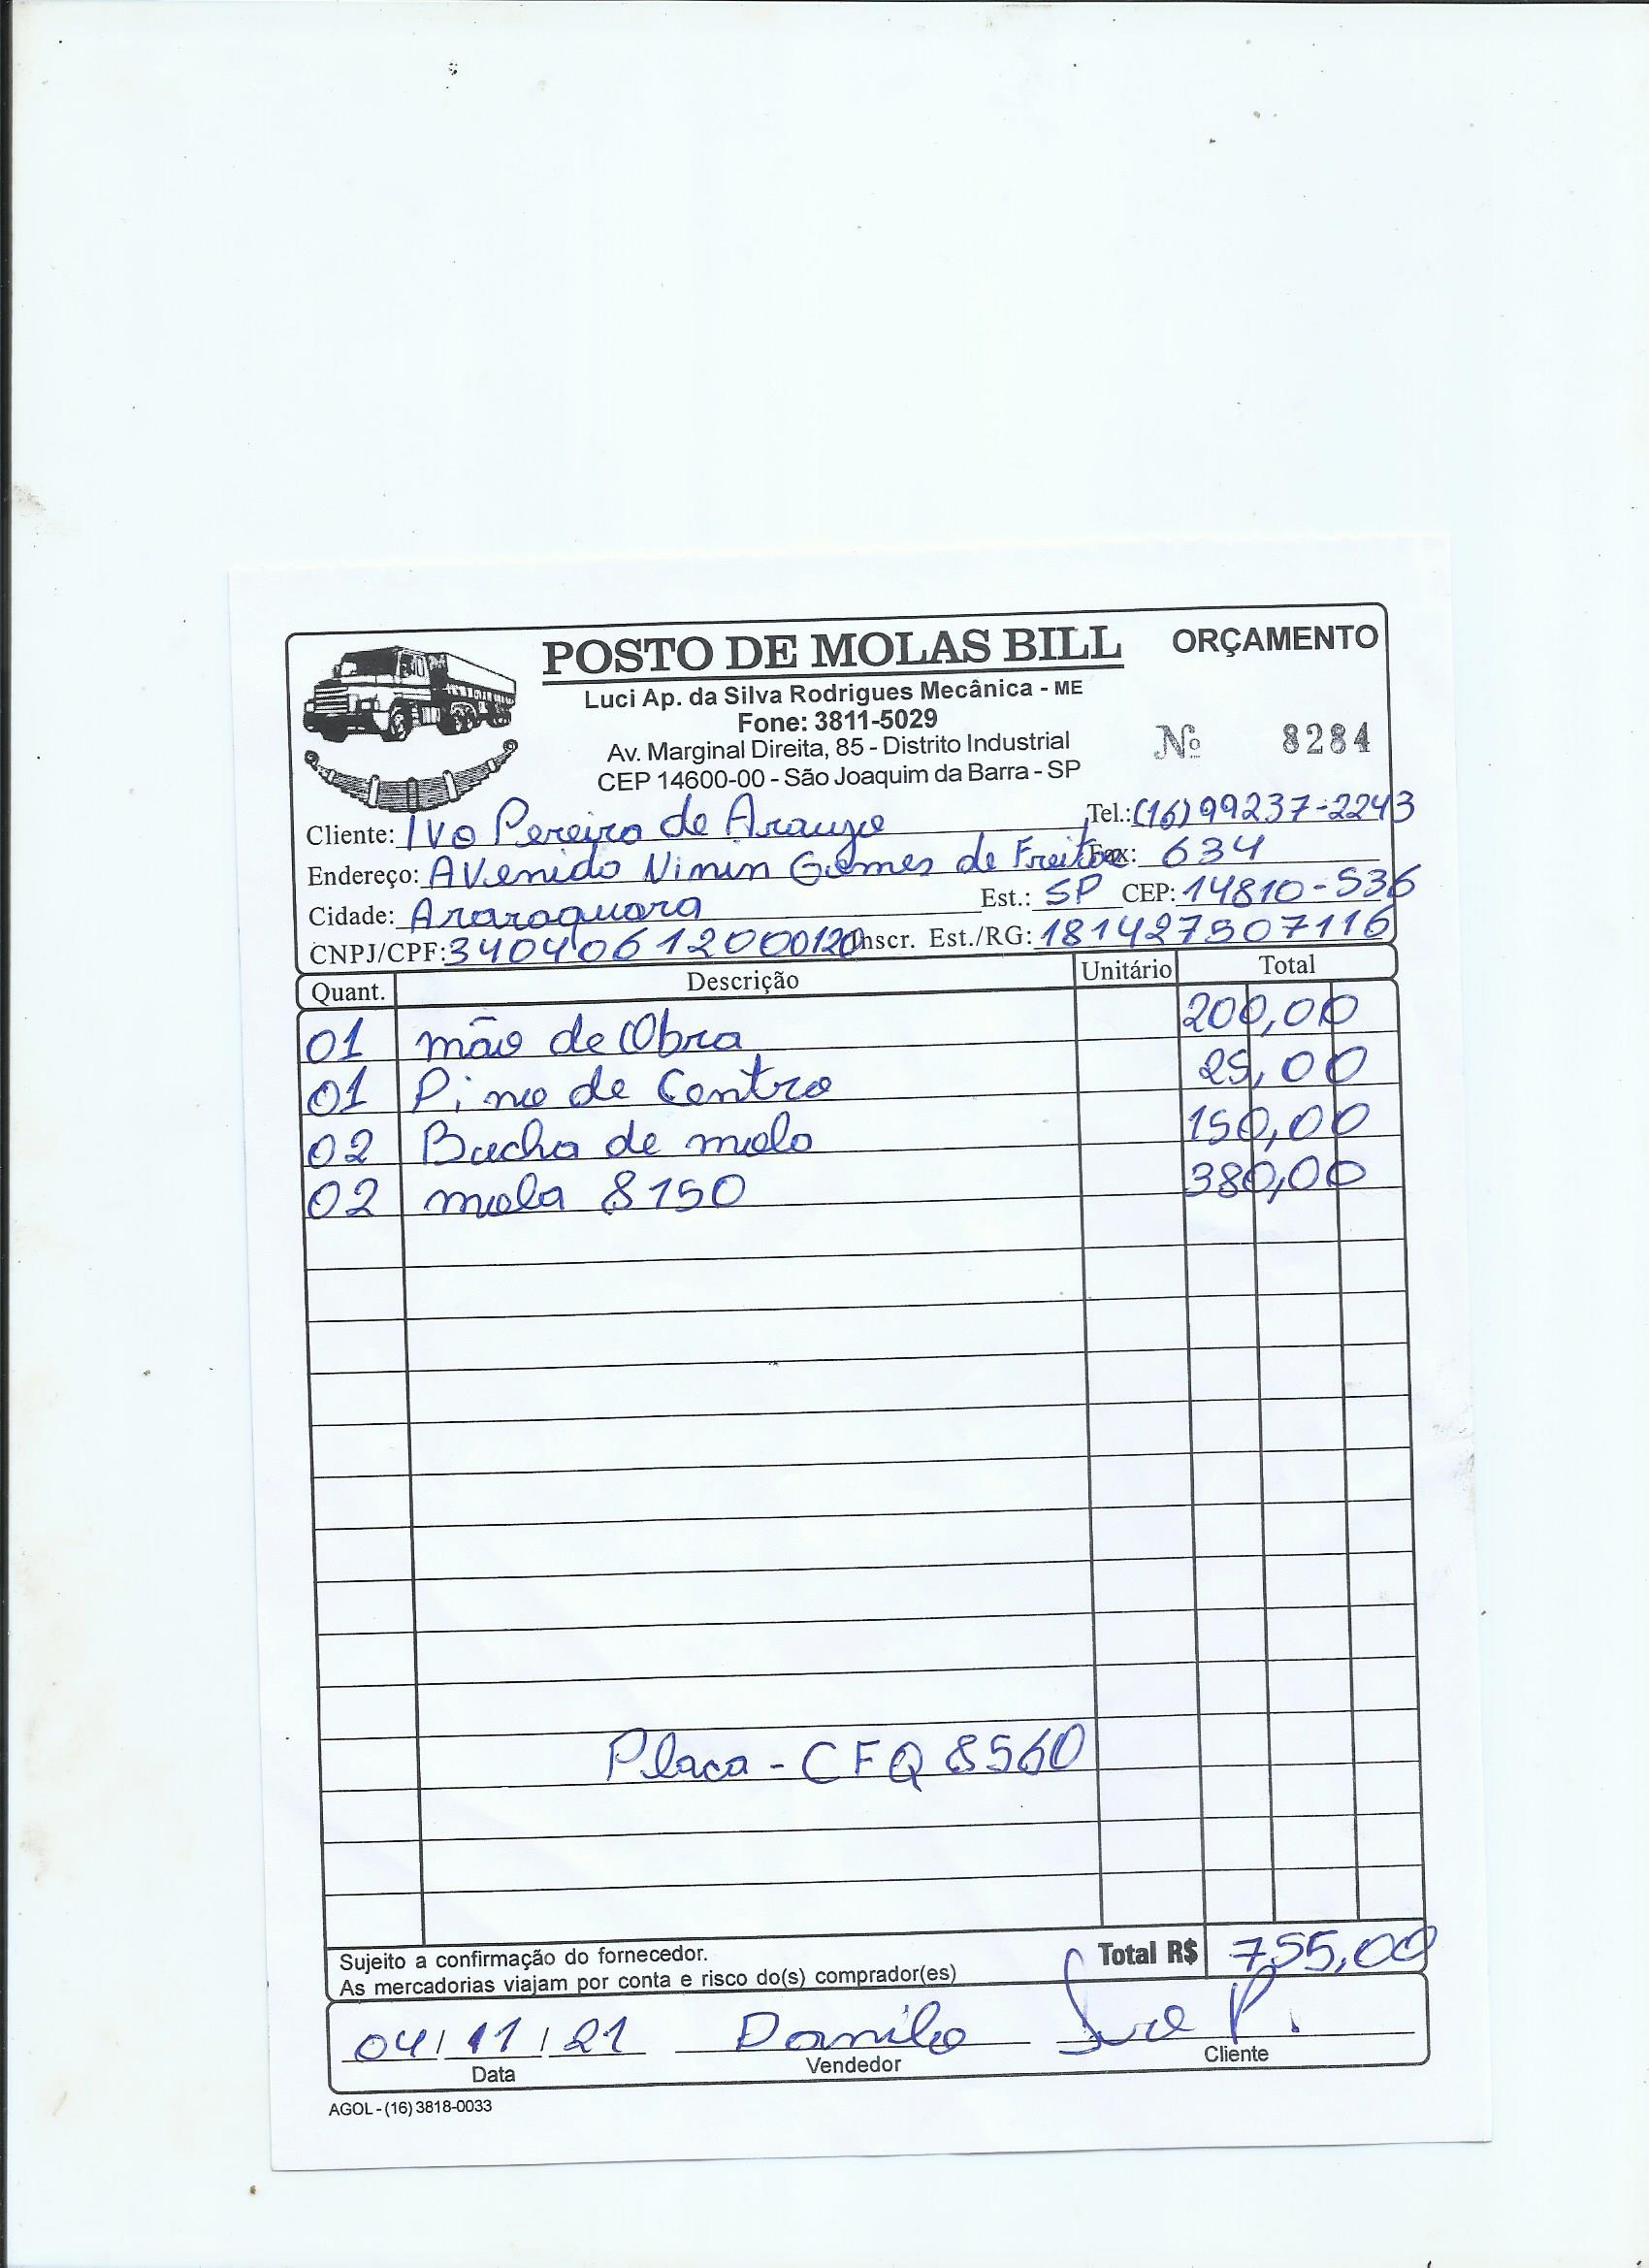 POSTO DE MOLAS BILL ORÇAMENTO
Luci Ap. da Silva Rodrigues Mecânica - ME
Fone: 3811-5029
Av. Marginal Direita, 85 - Distrito Industrial
CEP 14600-00 - São Joaquim da Barra - SP
Nº 8284
Cliente: Ivo Pereira de Araujo Tel.: (16) 99237-2243
Endereço: Avenida Ninin Gomes de Freitas Fax: 634
Cidade: Araraquara Est.: SP CEP: 14810-536
CNPJ/CPF: 34040612000120 Inscr. Est./RG: 181427507116
Quant. Descrição Unitário Total
01 mão de Obra 200,00
01 Pino de Centro 25,00
02 Bucha de mola 150,00
02 mola 8150 380,00
Placa - CFQ 8560
Sujeito a confirmação do fornecedor.
As mercadorias viajam por conta e risco do(s) comprador(es)
Total R$ 755,00
04/11/21 Danilo
Data Vendedor Cliente
AGOL - (16) 3818-0033